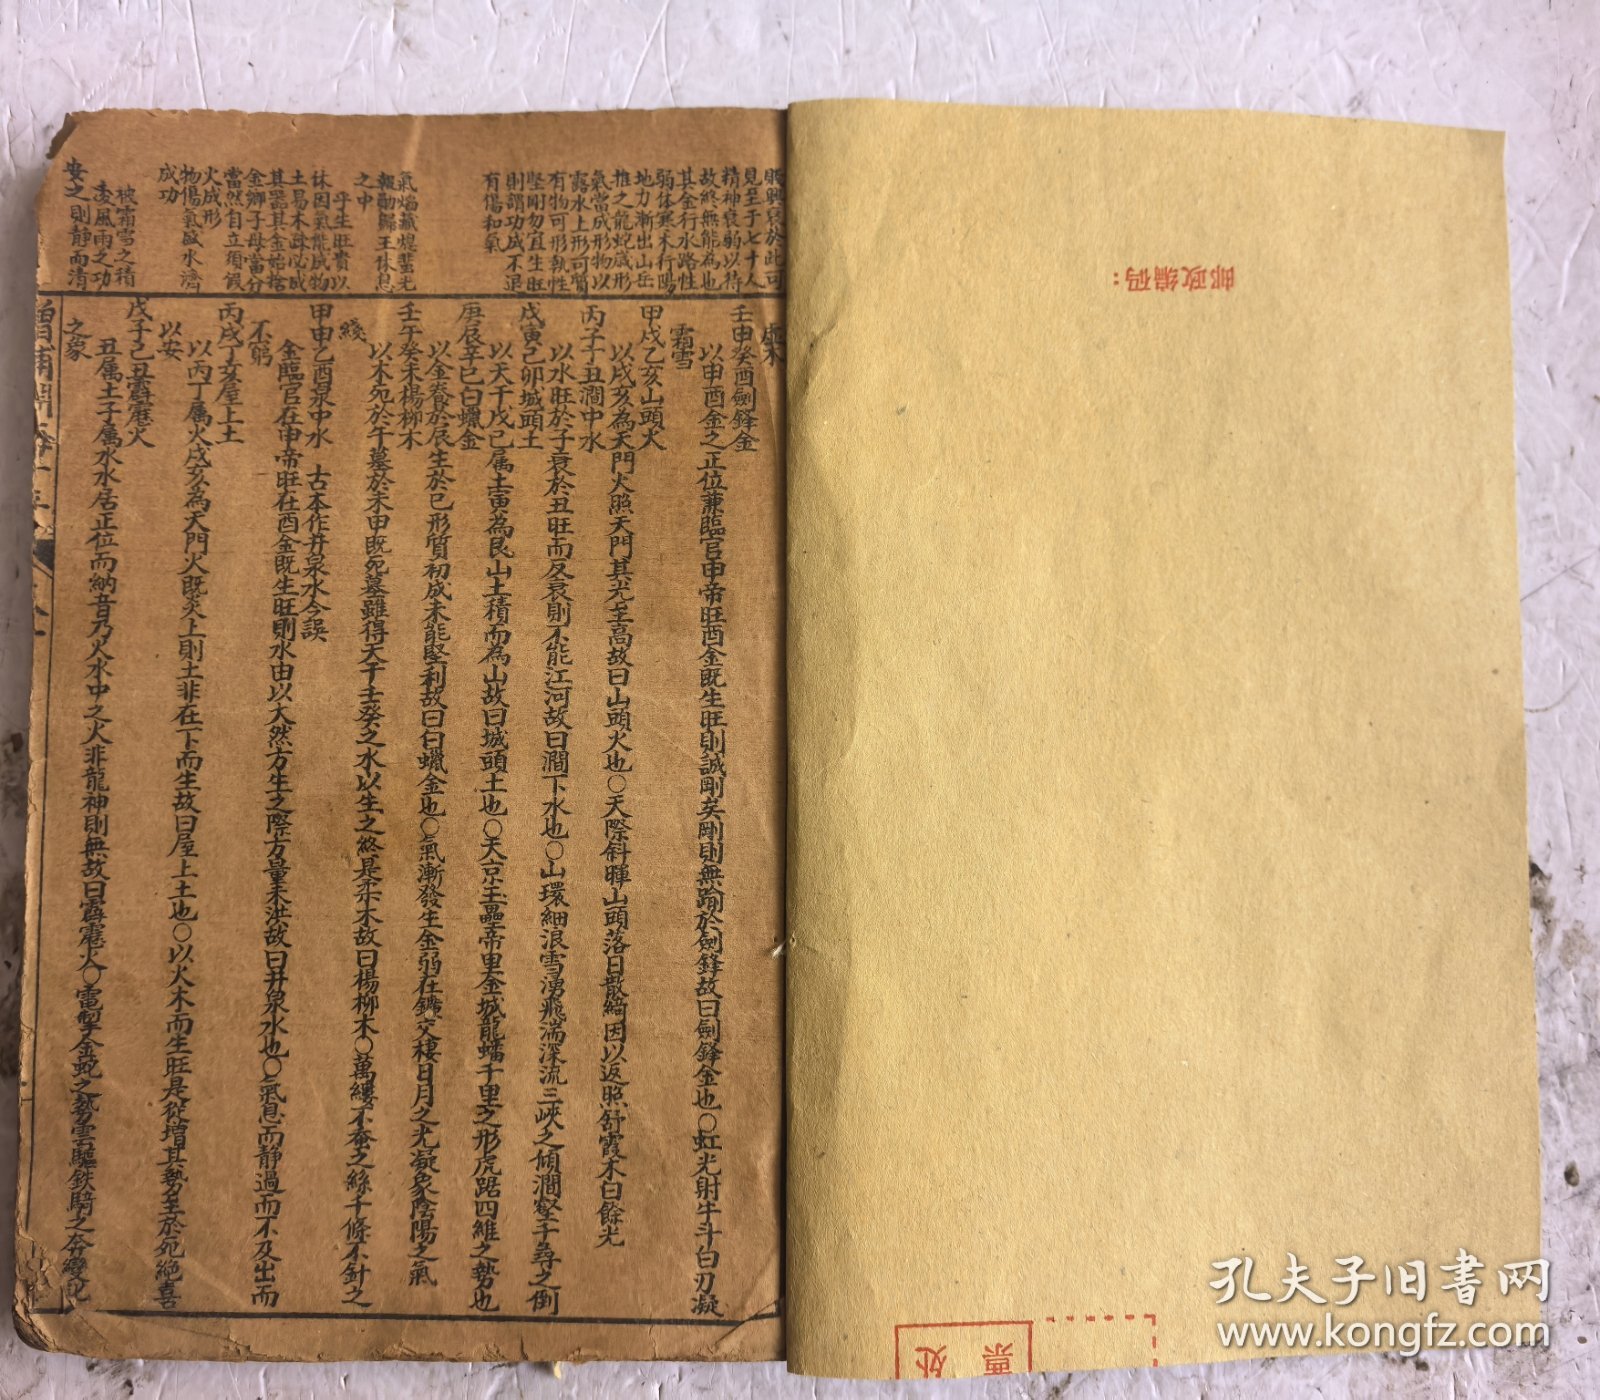 賑興衰於此可
見至于七十人
精神衰弱以待
故終無能為也
其金行水路性
弱体寒木行陽
地力漸出山岳
推之龍蛇歲形
氣當成形物以
露水上形可質
有物可形執性
堅剛勿宜生旺
則謂功成不退
有傷和氣
氣焰藏煌蜚光
報動歸王休息
之中
乎生旺貴以
休因氣能成物
土易木疎必成
其器其金始捨
金鄉子母當分
當然自立須假
火成形
物傷氣感水濟
成功
被霜雪之積
凌風雨之功
安之則静而清
虛木
壬申癸酉劍鋒金
以申酉金之正位兼臨官申帝旺酉金既生旺則誠剛矣剛則無踰於劍鋒故曰劍鋒金也〇虹光射牛斗白刃凝
霜雪
甲戌乙亥山頭火
以戌亥為天門火照天門其光至高故曰山頭火也〇天際斜暉山頭落日散綺因以返照舒霞木白餘光
丙子丁丑澗中水
以水旺於子衰於丑旺而反衰則不能江河故曰澗下水也〇山環細浪雪湧飛湍深流三峽之傾澗壑千尋之倒
戊寅己卯城頭土
以天干戊己属土寅為艮山土積而為山故曰城頭土也〇天京玉壘帝里金城龍蟠千里之形虎踞四維之勢也
庚辰辛巳白蠟金
以金養於辰生於巳形質初成未能堅利故曰白蠟金也〇氣漸發生金弱在鑛交棲日月之光凝象陰陽之氣
壬午癸未楊柳木
以木死於午墓於未甲既死墓雖得天干壬癸之水以生之終是柔木故曰楊柳木〇萬縷不蚕之絲千條不針之
綫
甲申乙酉泉中水 古本作井泉水今誤
金臨官在申帝旺在酉金既生旺則水由以大然方生之際方量未洪故曰井泉水也〇氣息而静過而不及出而
不窮
丙戌丁亥屋上土
以丙丁属火戌亥為天門火既炎上則土非在下而生故曰屋上土也〇以火木而生旺是從增其勢至於死絶喜
以安
戊子己丑霹靂火
丑属土子属水水居正位而納音乃火水中之火非龍神則無故曰霹靂火〇電掣金蛇之勢雲驅鉄騎之奔變化
之象
邮政编码：
票处
孔夫子旧书网
www.kongfz.com